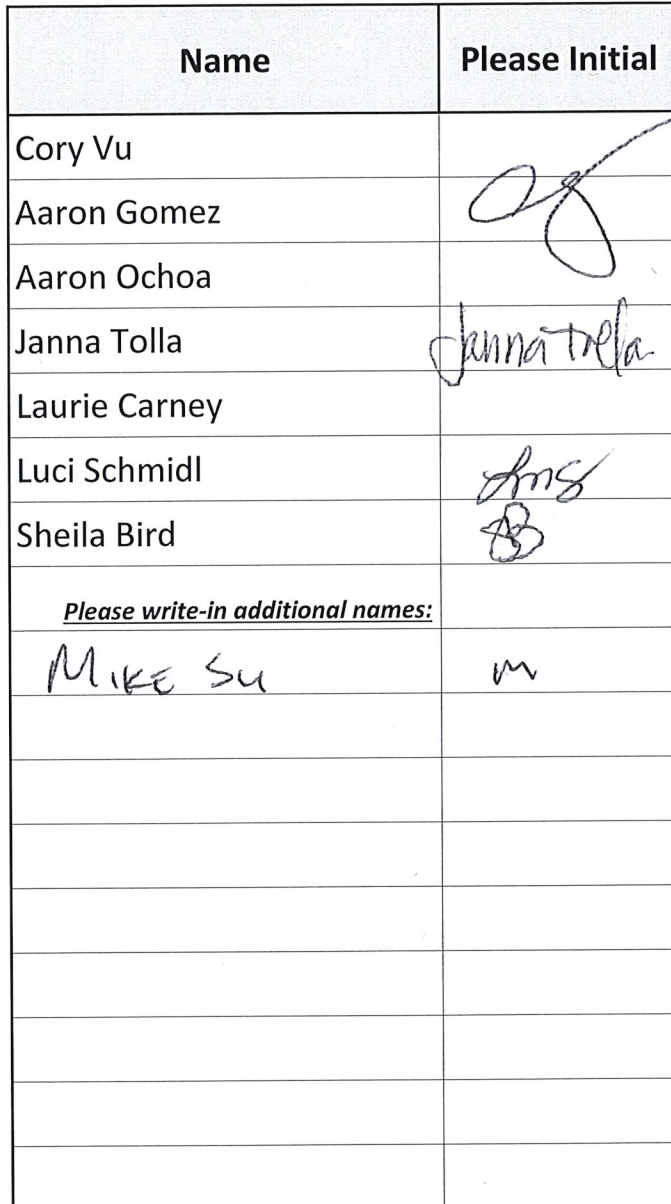 Name Please Initial
Cory Vu
Aaron Gomez
Aaron Ochoa
Janna Tolla Janna Tolla
Laurie Carney
Luci Schmidl lms
Sheila Bird
Please write-in additional names:
MIKE SU m